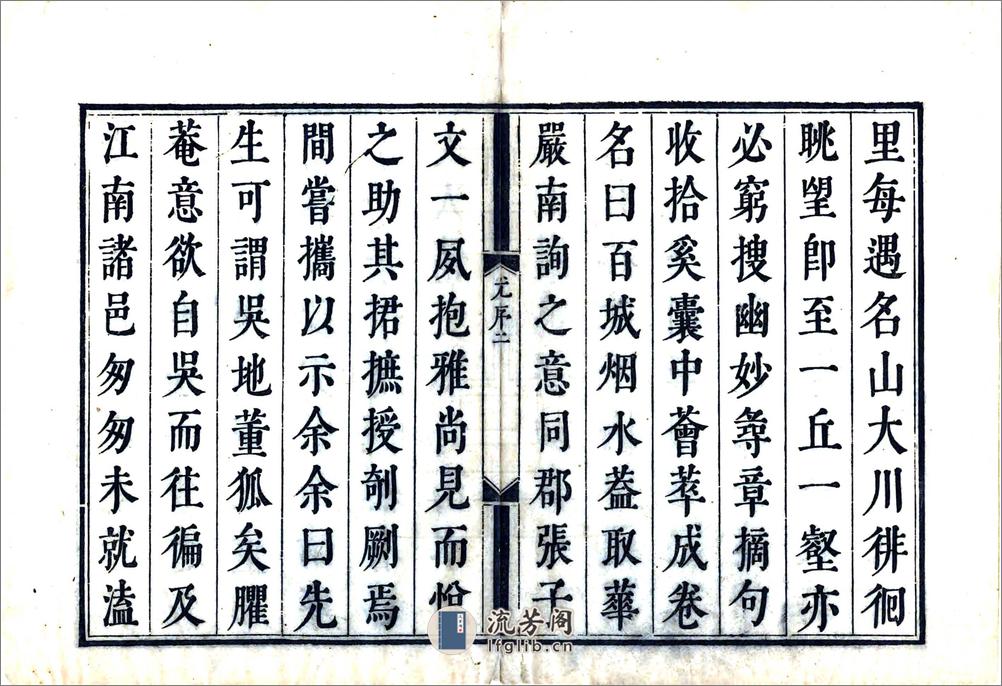 里每遇名山大川徘徊
眺望卽至一丘一壑亦
必窮搜幽妙尋章摘句
收拾奚囊中薈萃成卷
名曰百城烟水葢取華
嚴南詢之意同郡張子
尤序二
文一夙抱雅尚見而悅
之助其捃摭授剞劂焉
間嘗攜以示余余曰先
生可謂吳地董狐矣臞
菴意欲自吳而往徧及
江南諸邑匆匆未就溘
流芳阁
lfglib.cn